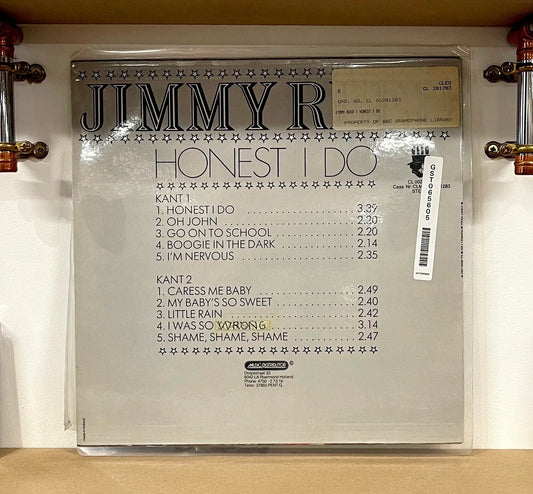 CLEO
CL 281283
JIMMY R
JIMMY REED / HONEST I DO
PROPERTY OF BBC GRAMOPHONE LIBRARY
HONEST I DO
GST065605
KANT 1
1. HONEST I DO 3.39
2. OH JOHN 2.20
3. GO ON TO SCHOOL 2.20
4. BOOGIE IN THE DARK 2.14
5. I'M NERVOUS 2.35
KANT 2
1. CARESS ME BABY 2.49
2. MY BABY'S SO SWEET 2.40
3. LITTLE RAIN 2.42
4. I WAS SO WRONG 3.14
5. SHAME, SHAME, SHAME 2.47
Dorpsstraat 33
6042 LA Roermond Holland
Phone: 4750 - 2 73 16